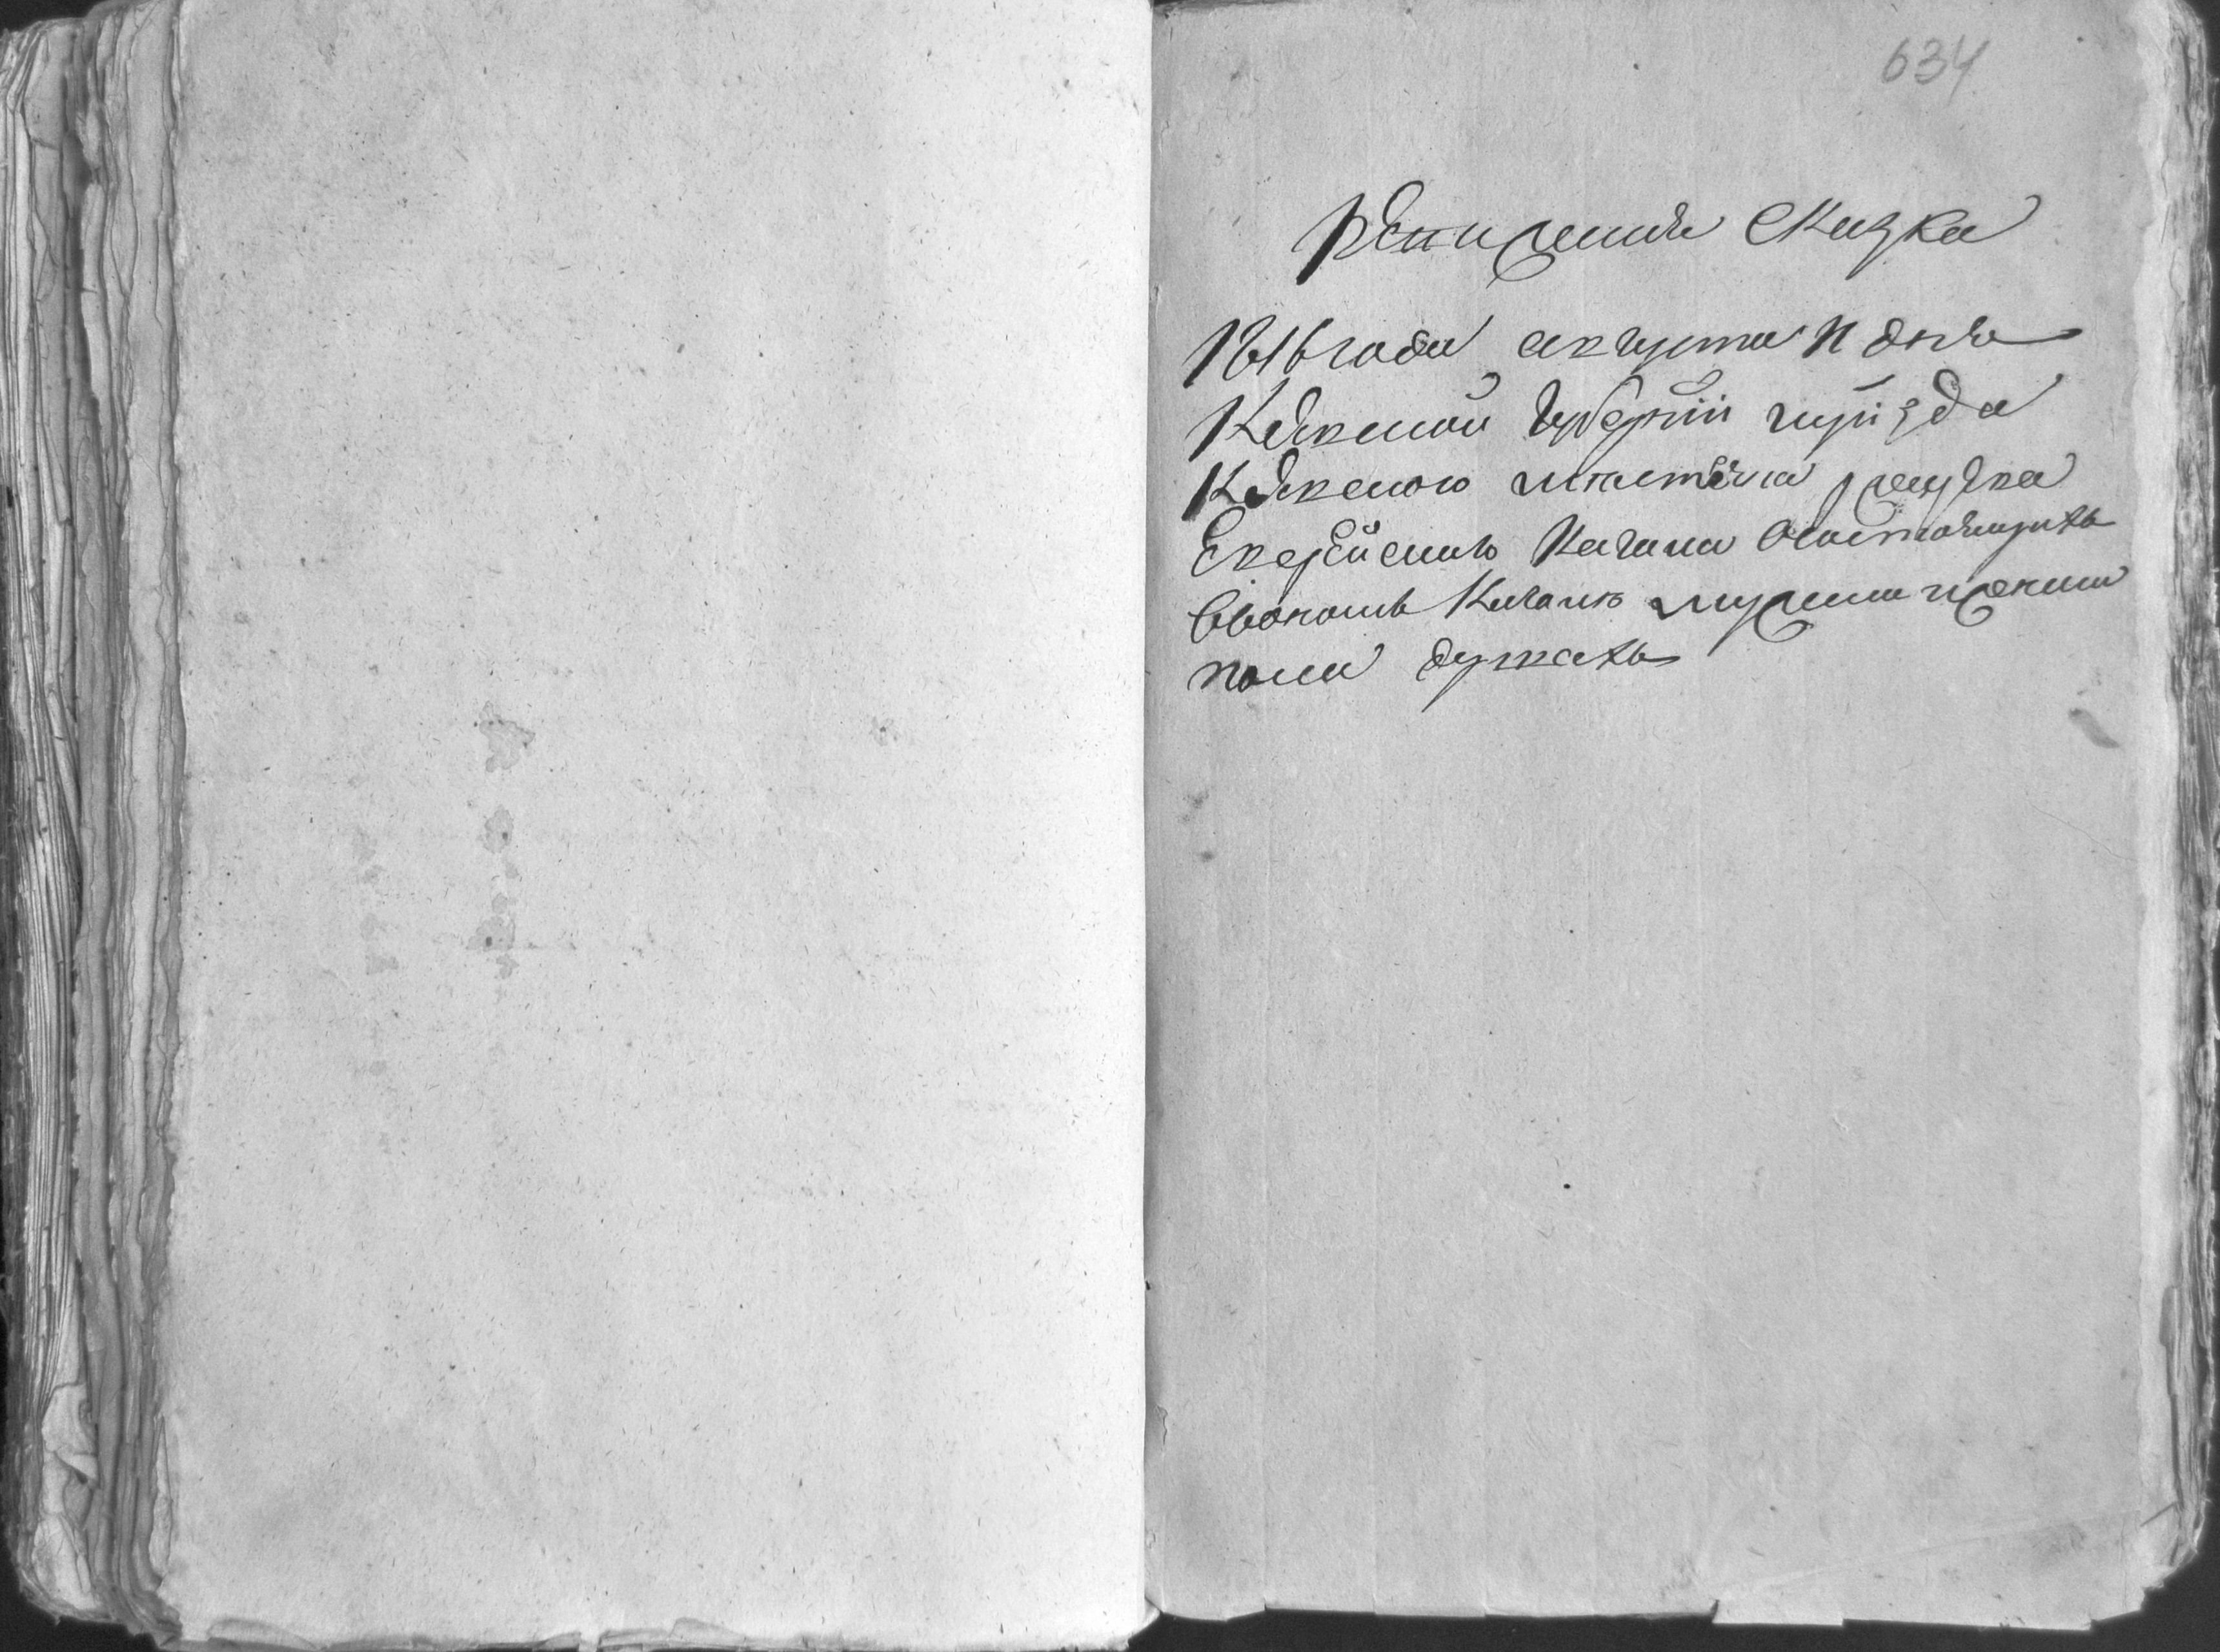 634
Ревизская Сказка
1816 года августа дня
Киевской Губернии и уезда
Киевского местечка
Еврейского Кагала о состоящихъ
в ономъ Кагале мужеска и женска
пола душахъ